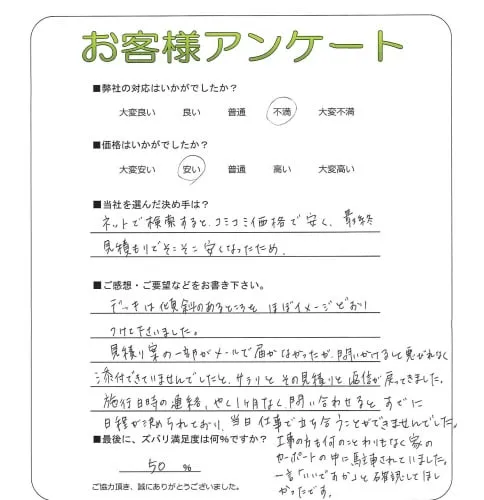 お客様アンケート
■弊社の対応はいかがでしたか?
大変良い 良い 普通 不満 大変不満
■価格はいかがでしたか?
大変安い 安い 普通 高い 大変高い
■当社を選んだ決め手は?
ネットで検索すると、コミコミ価格で安く、最終
見積もりでそこそこ安くなったため。
■ご感想・ご要望などをお書き下さい。
デッキは傾斜のあるところも ほぼイメージどおり
つけて下さいました。
見積り案の一部がメールで届かなかったが、問いかけると悪びれなく
添付できていませんでしたと、サラリと その見積りと返信が戻ってきました。
施行日時の連絡、やく1ヶ月なく、問い合わせると、すでに
日程が決められており、当日仕事で立ち会うことができませんでした。
工事の方も何のことわりもなく家の
カーポートの中に駐車されていました。
一言「いいですか」と確認してほし
かったです。
■最後に、ズバリ満足度は何%ですか?
50 %
ご協力頂き、誠にありがとうございました。